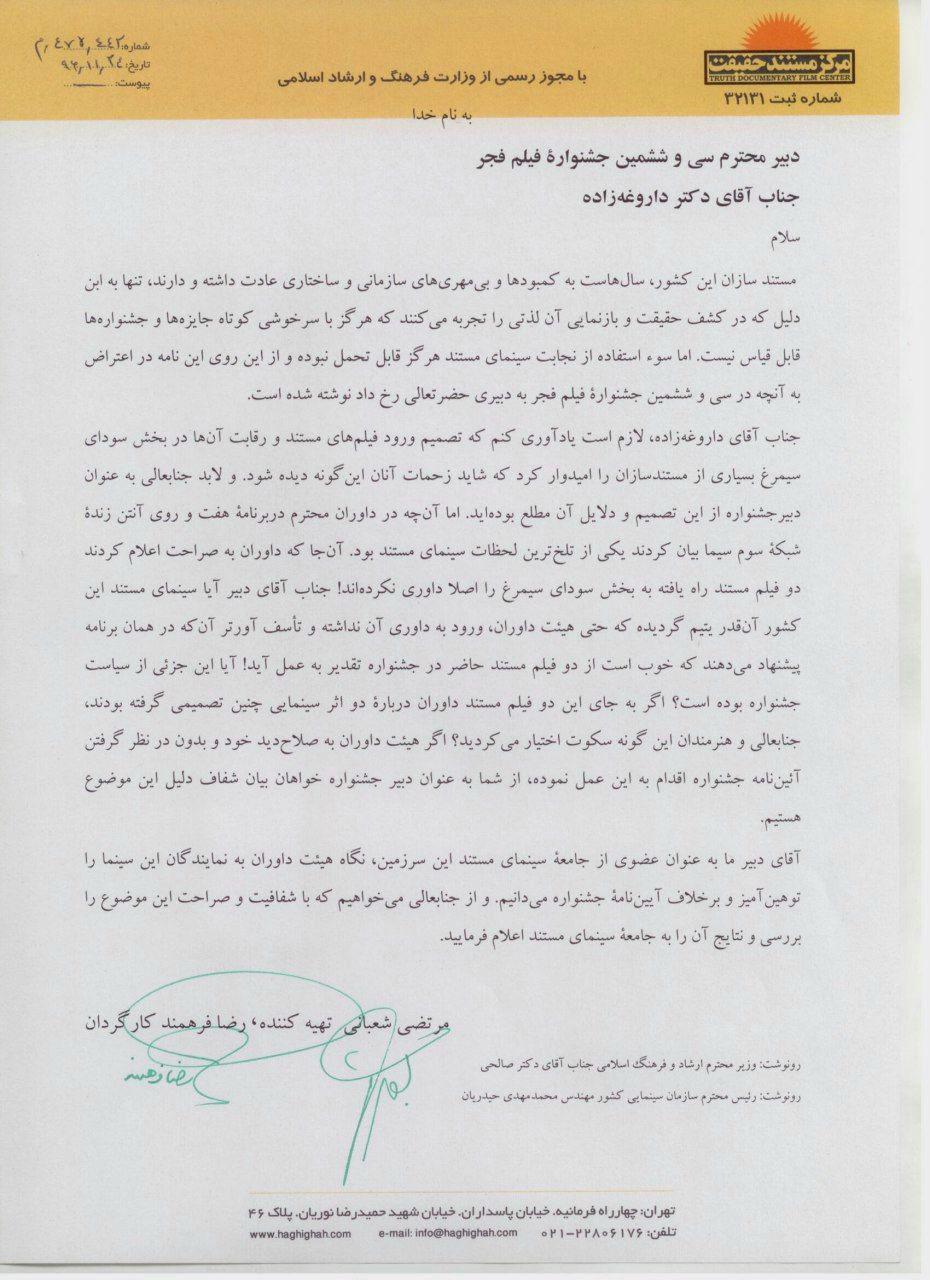 شماره: ۴۷۵٫۴۴۲٫م
تاریخ: ۹۶٫۱۱٫۲۴
پیوست:
مرکز مستند حقیقت
TRUTH DOCUMENTARY FILM CENTER
شماره ثبت ۳۲۱۳۱
با مجوز رسمی از وزارت فرهنگ و ارشاد اسلامی
به نام خدا
دبیر محترم سی و ششمین جشنوارهٔ فیلم فجر
جناب آقای دکتر داروغه‌زاده
سلام
مستند سازان این کشور، سال‌هاست به کمبودها و بی‌مهری‌های سازمانی و ساختاری عادت داشته و دارند، تنها به ابن
دلیل که در کشف حقیقت و بازنمایی آن لذتی را تجربه می‌کنند که هرگز با سرخوشی کوتاه جایزه‌ها و جشنواره‌ها
قابل قیاس نیست. اما سوء استفاده از نجابت سینمای مستند هرگز قابل تحمل نبوده و از این روی این نامه در اعتراض
به آنچه در سی و ششمین جشنوارهٔ فیلم فجر به دبیری حضرتعالی رخ داد نوشته شده است.
جناب آقای داروغه‌زاده، لازم است یادآوری کنم که تصمیم ورود فیلم‌های مستند و رقابت آن‌ها در بخش سودای
سیمرغ بسیاری از مستندسازان را امیدوار کرد که شاید زحمات آنان این‌گونه دیده شود. و لابد جنابعالی به عنوان
دبیرجشنواره از این تصمیم و دلایل آن مطلع بوده‌اید. اما آن‌چه در داوران محترم دربرنامهٔ هفت و روی آنتن زندهٔ
شبکهٔ سوم سیما بیان کردند یکی از تلخ‌ترین لحظات سینمای مستند بود. آن‌جا که داوران به صراحت اعلام کردند
دو فیلم مستند راه یافته به بخش سودای سیمرغ را اصلا داوری نکرده‌اند! جناب آقای دبیر آیا سینمای مستند این
کشور آن‌قدر یتیم گردیده که حتی هیئت داوران، ورود به داوری آن نداشته و تأسف آورتر آن‌که در همان برنامه
پیشنهاد می‌دهند که خوب است از دو فیلم مستند حاضر در جشنواره تقدیر به عمل آید! آیا این جزئی از سیاست
جشنواره بوده است؟ اگر به جای این دو فیلم مستند داوران دربارهٔ دو اثر سینمایی چنین تصمیمی گرفته بودند،
جنابعالی و هنرمندان این گونه سکوت اختیار می‌کردید؟ اگر هیئت داوران به صلاح‌دید خود و بدون در نظر گرفتن
آئین‌نامه جشنواره اقدام به این عمل نموده، از شما به عنوان دبیر جشنواره خواهان بیان شفاف دلیل این موضوع
هستیم.
آقای دبیر ما به عنوان عضوی از جامعهٔ سینمای مستند این سرزمین، نگاه هیئت داوران به نمایندگان این سینما را
توهین‌آمیز و برخلاف آیین‌نامهٔ جشنواره می‌دانیم. و از جنابعالی می‌خواهیم که با شفافیت و صراحت این موضوع را
بررسی و نتایج آن را به جامعهٔ سینمای مستند اعلام فرمایید.
مرتضی شعبانی تهیه کننده، رضا فرهمند کارگردان
رضا فرهمند
رونوشت: وزیر محترم ارشاد و فرهنگ اسلامی جناب آقای دکتر صالحی
رونوشت: رئیس محترم سازمان سینمایی کشور مهندس محمدمهدی حیدریان
تهران: چهارراه فرمانیه. خیابان پاسداران. خیابان شهید حمیدرضا نوریان. پلاک ۴۶
تلفن: ۰۲۱-۲۲۸۰۶۱۷۶ e-mail: info@haghighah.com www.haghighah.com